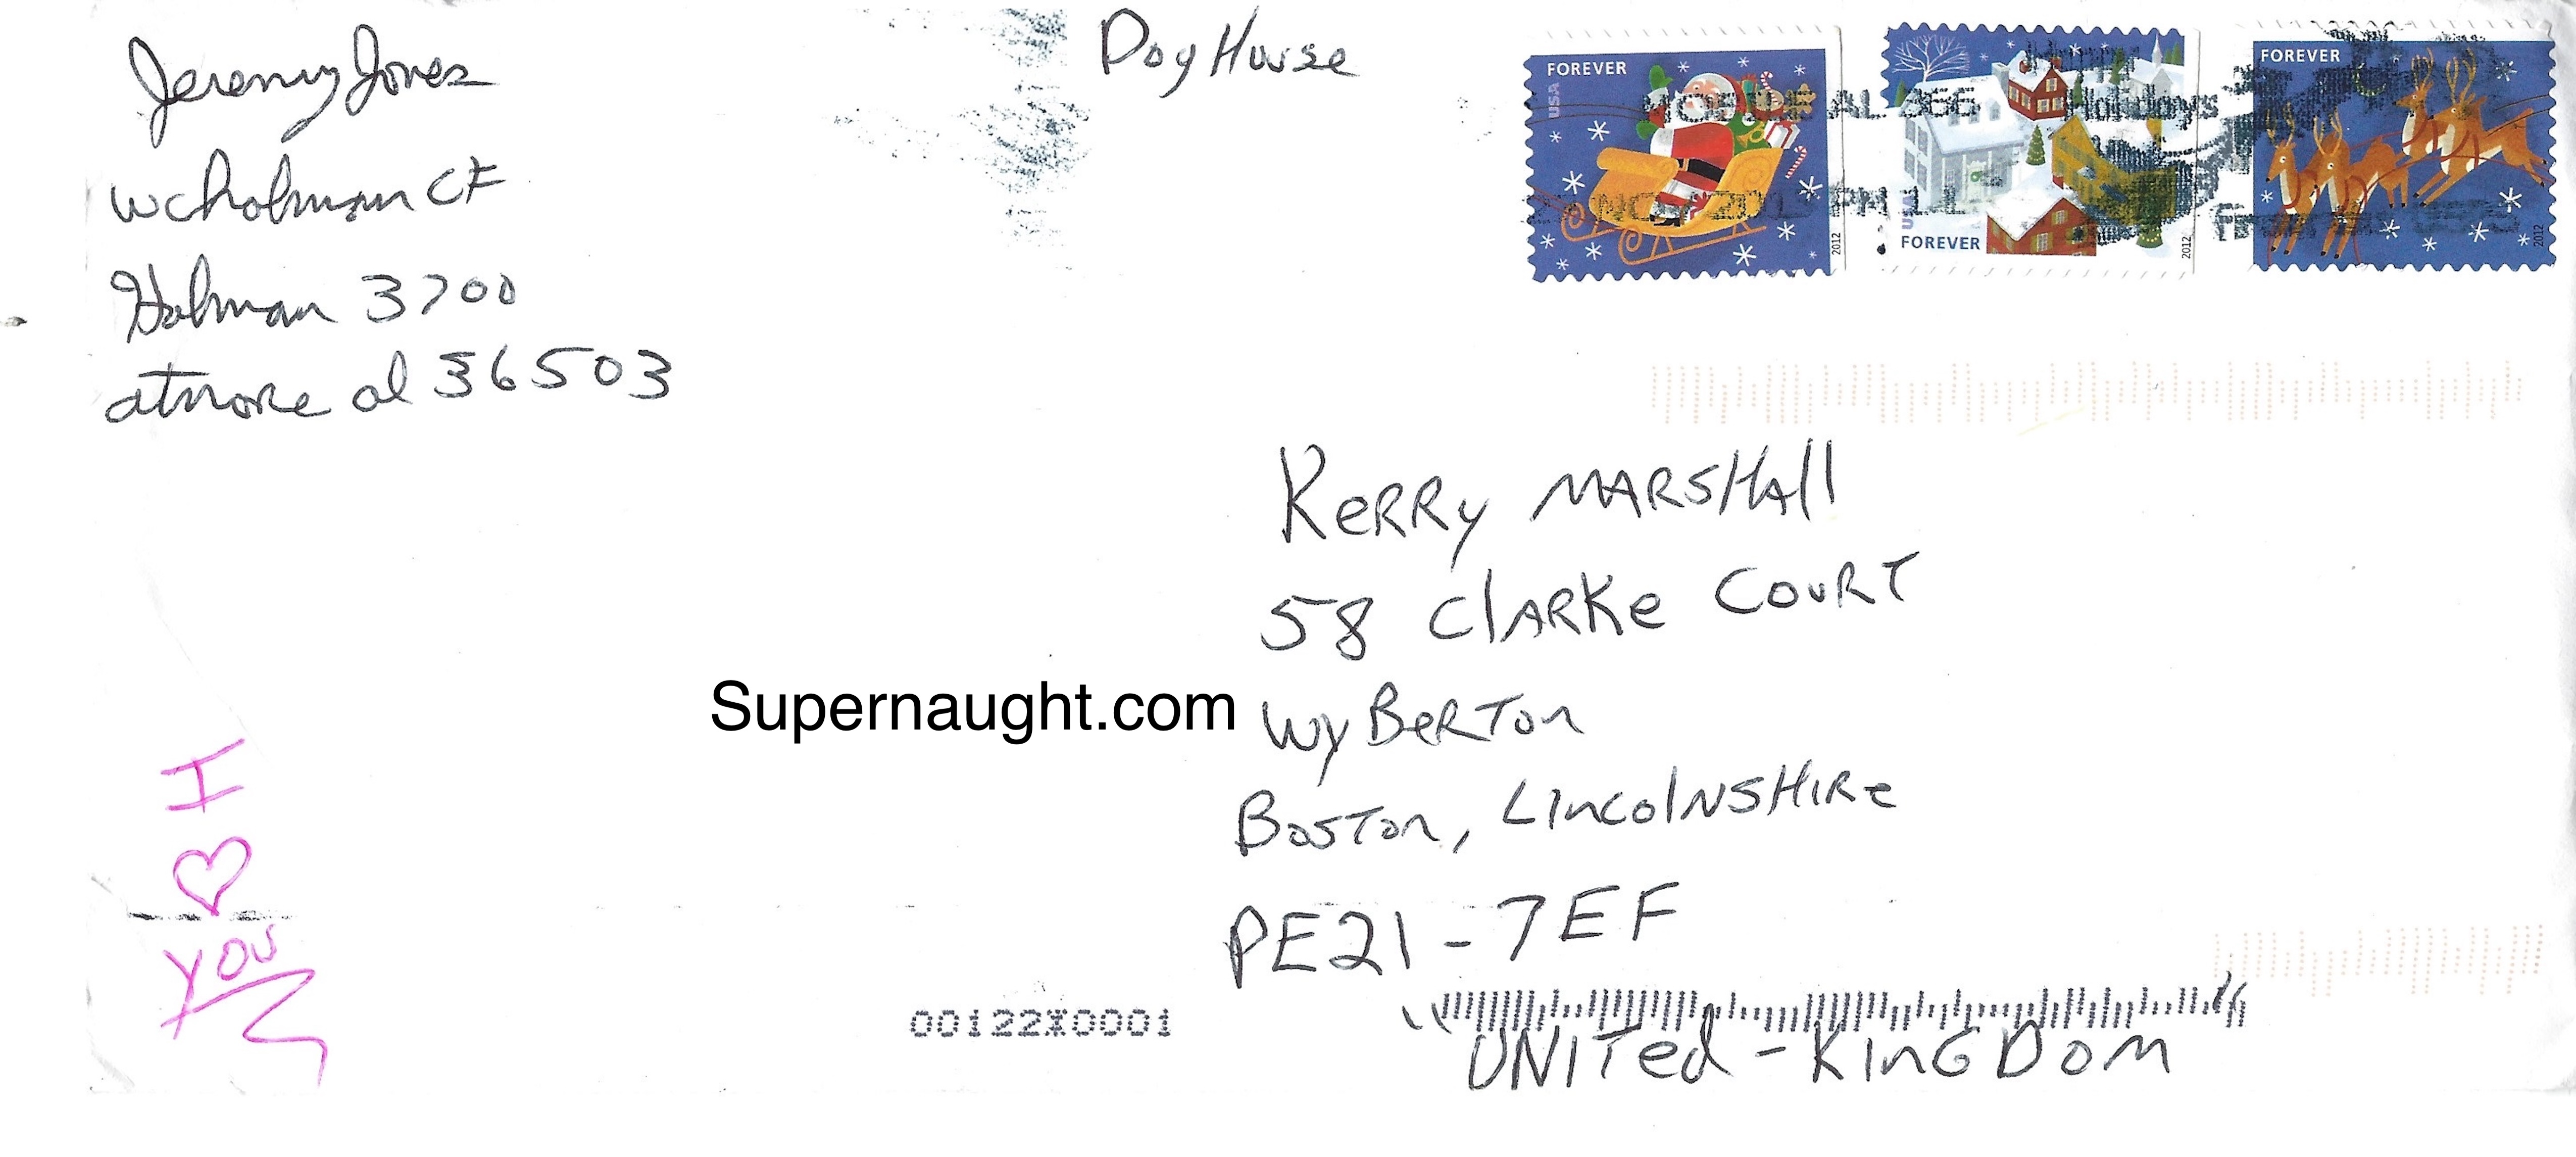 Jeremy Jones
WC holman CF
Holman 3700
atmore al 36503
Dog House
FOREVER
USA
2012
FOREVER
2012
FOREVER
2012
MOBILE AL 366
Holidays
PM
Kerry Marshall
58 Clarke Court
Wyberton
Boston, Lincolnshire
PE21-7EF
United-Kingdom
Supernaught.com
I ♡
you
00122X0001